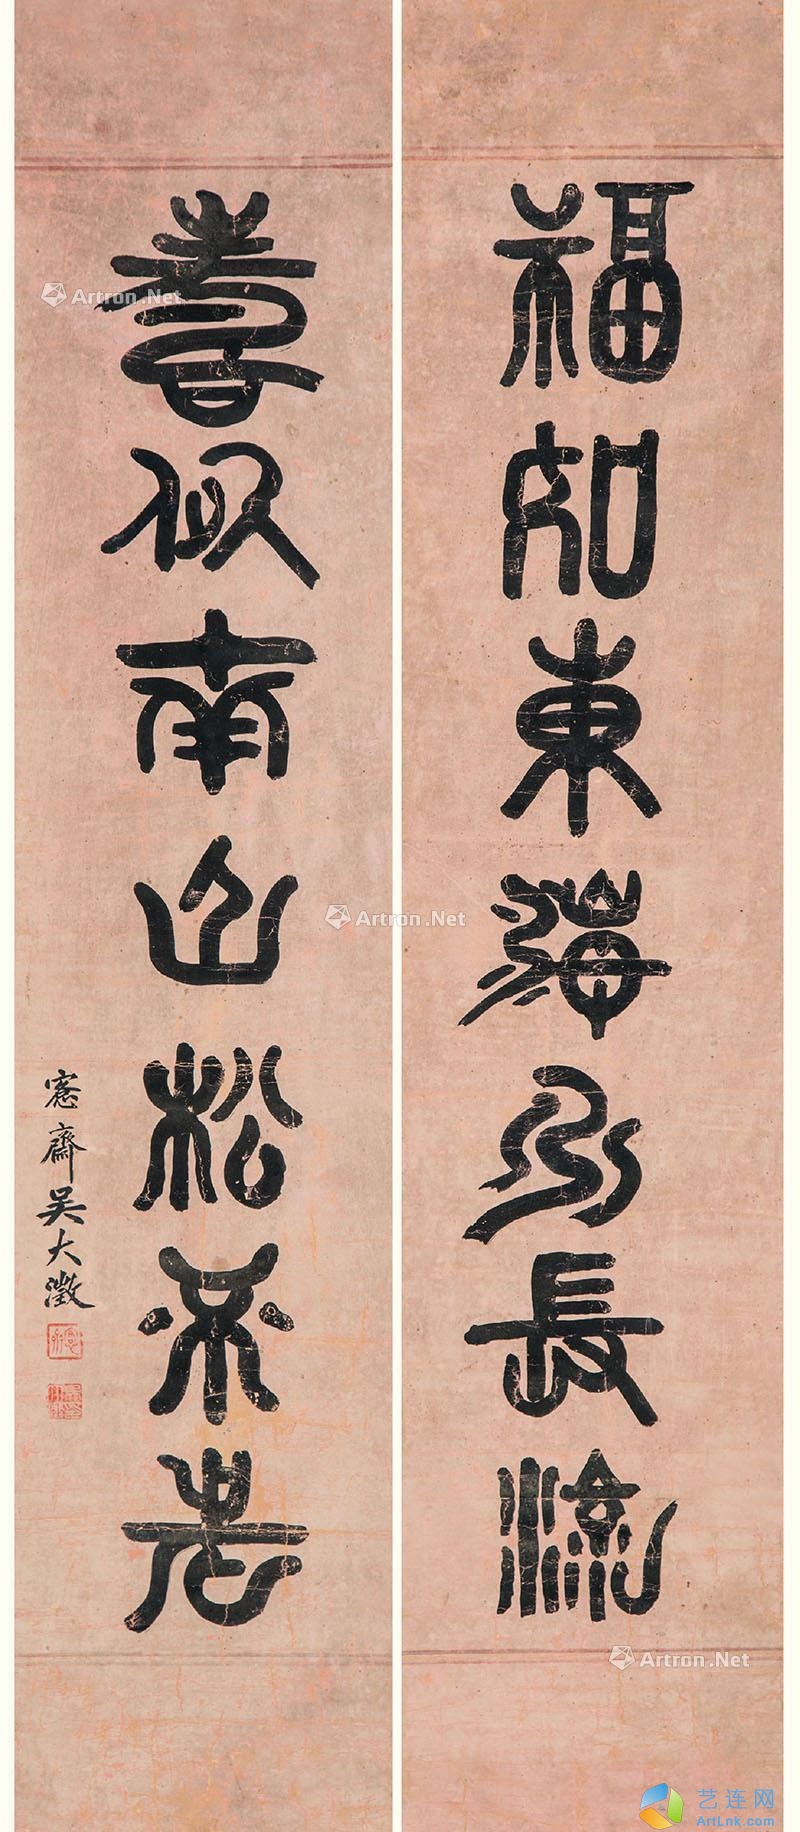 福如東海水長流
壽似南山松不老
愙齋吴大澂
Artron.Net
Artron.Net
Artron.Net
艺连网
ArtLnk.com